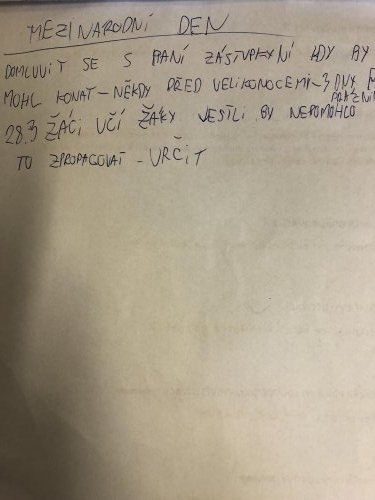 MEZINARODNÍ DEN
DOMLUVIT SE S PANÍ ZÁSTUPKYNÍ KDY BY
MOHL KONAT - NĚKDY PŘED VELIKONOCEMI - 3 DNY
PRÁZNI
28.3 ŽÁCI UČÍ ŽÁKY JESTLI BY NEPOMOHLO
TO ZPROPAGOVAT - URČIT